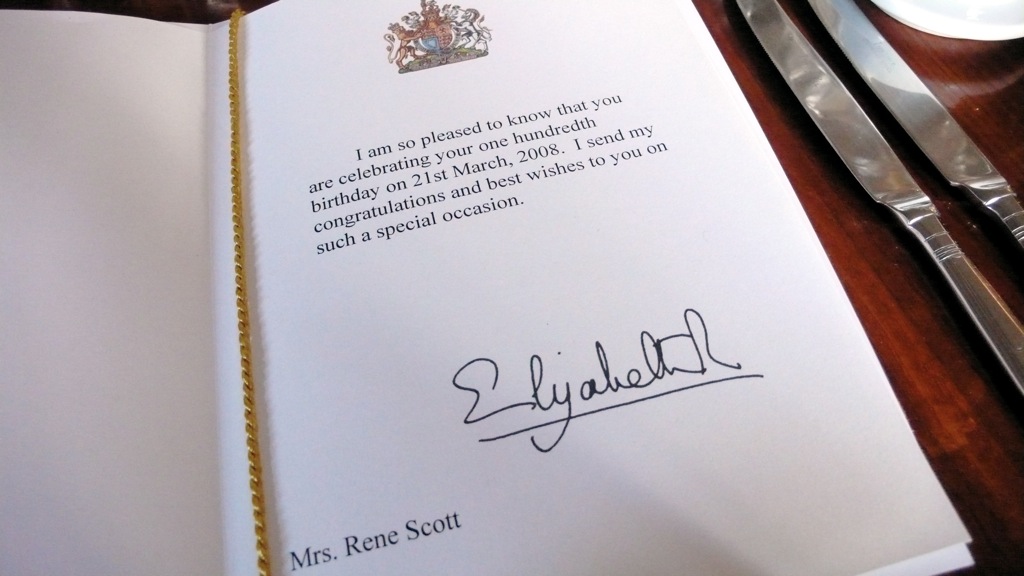 I am so pleased to know that you
are celebrating your one hundredth
birthday on 21st March, 2008. I send my
congratulations and best wishes to you on
such a special occasion.
Elizabeth R
Mrs. Rene Scott